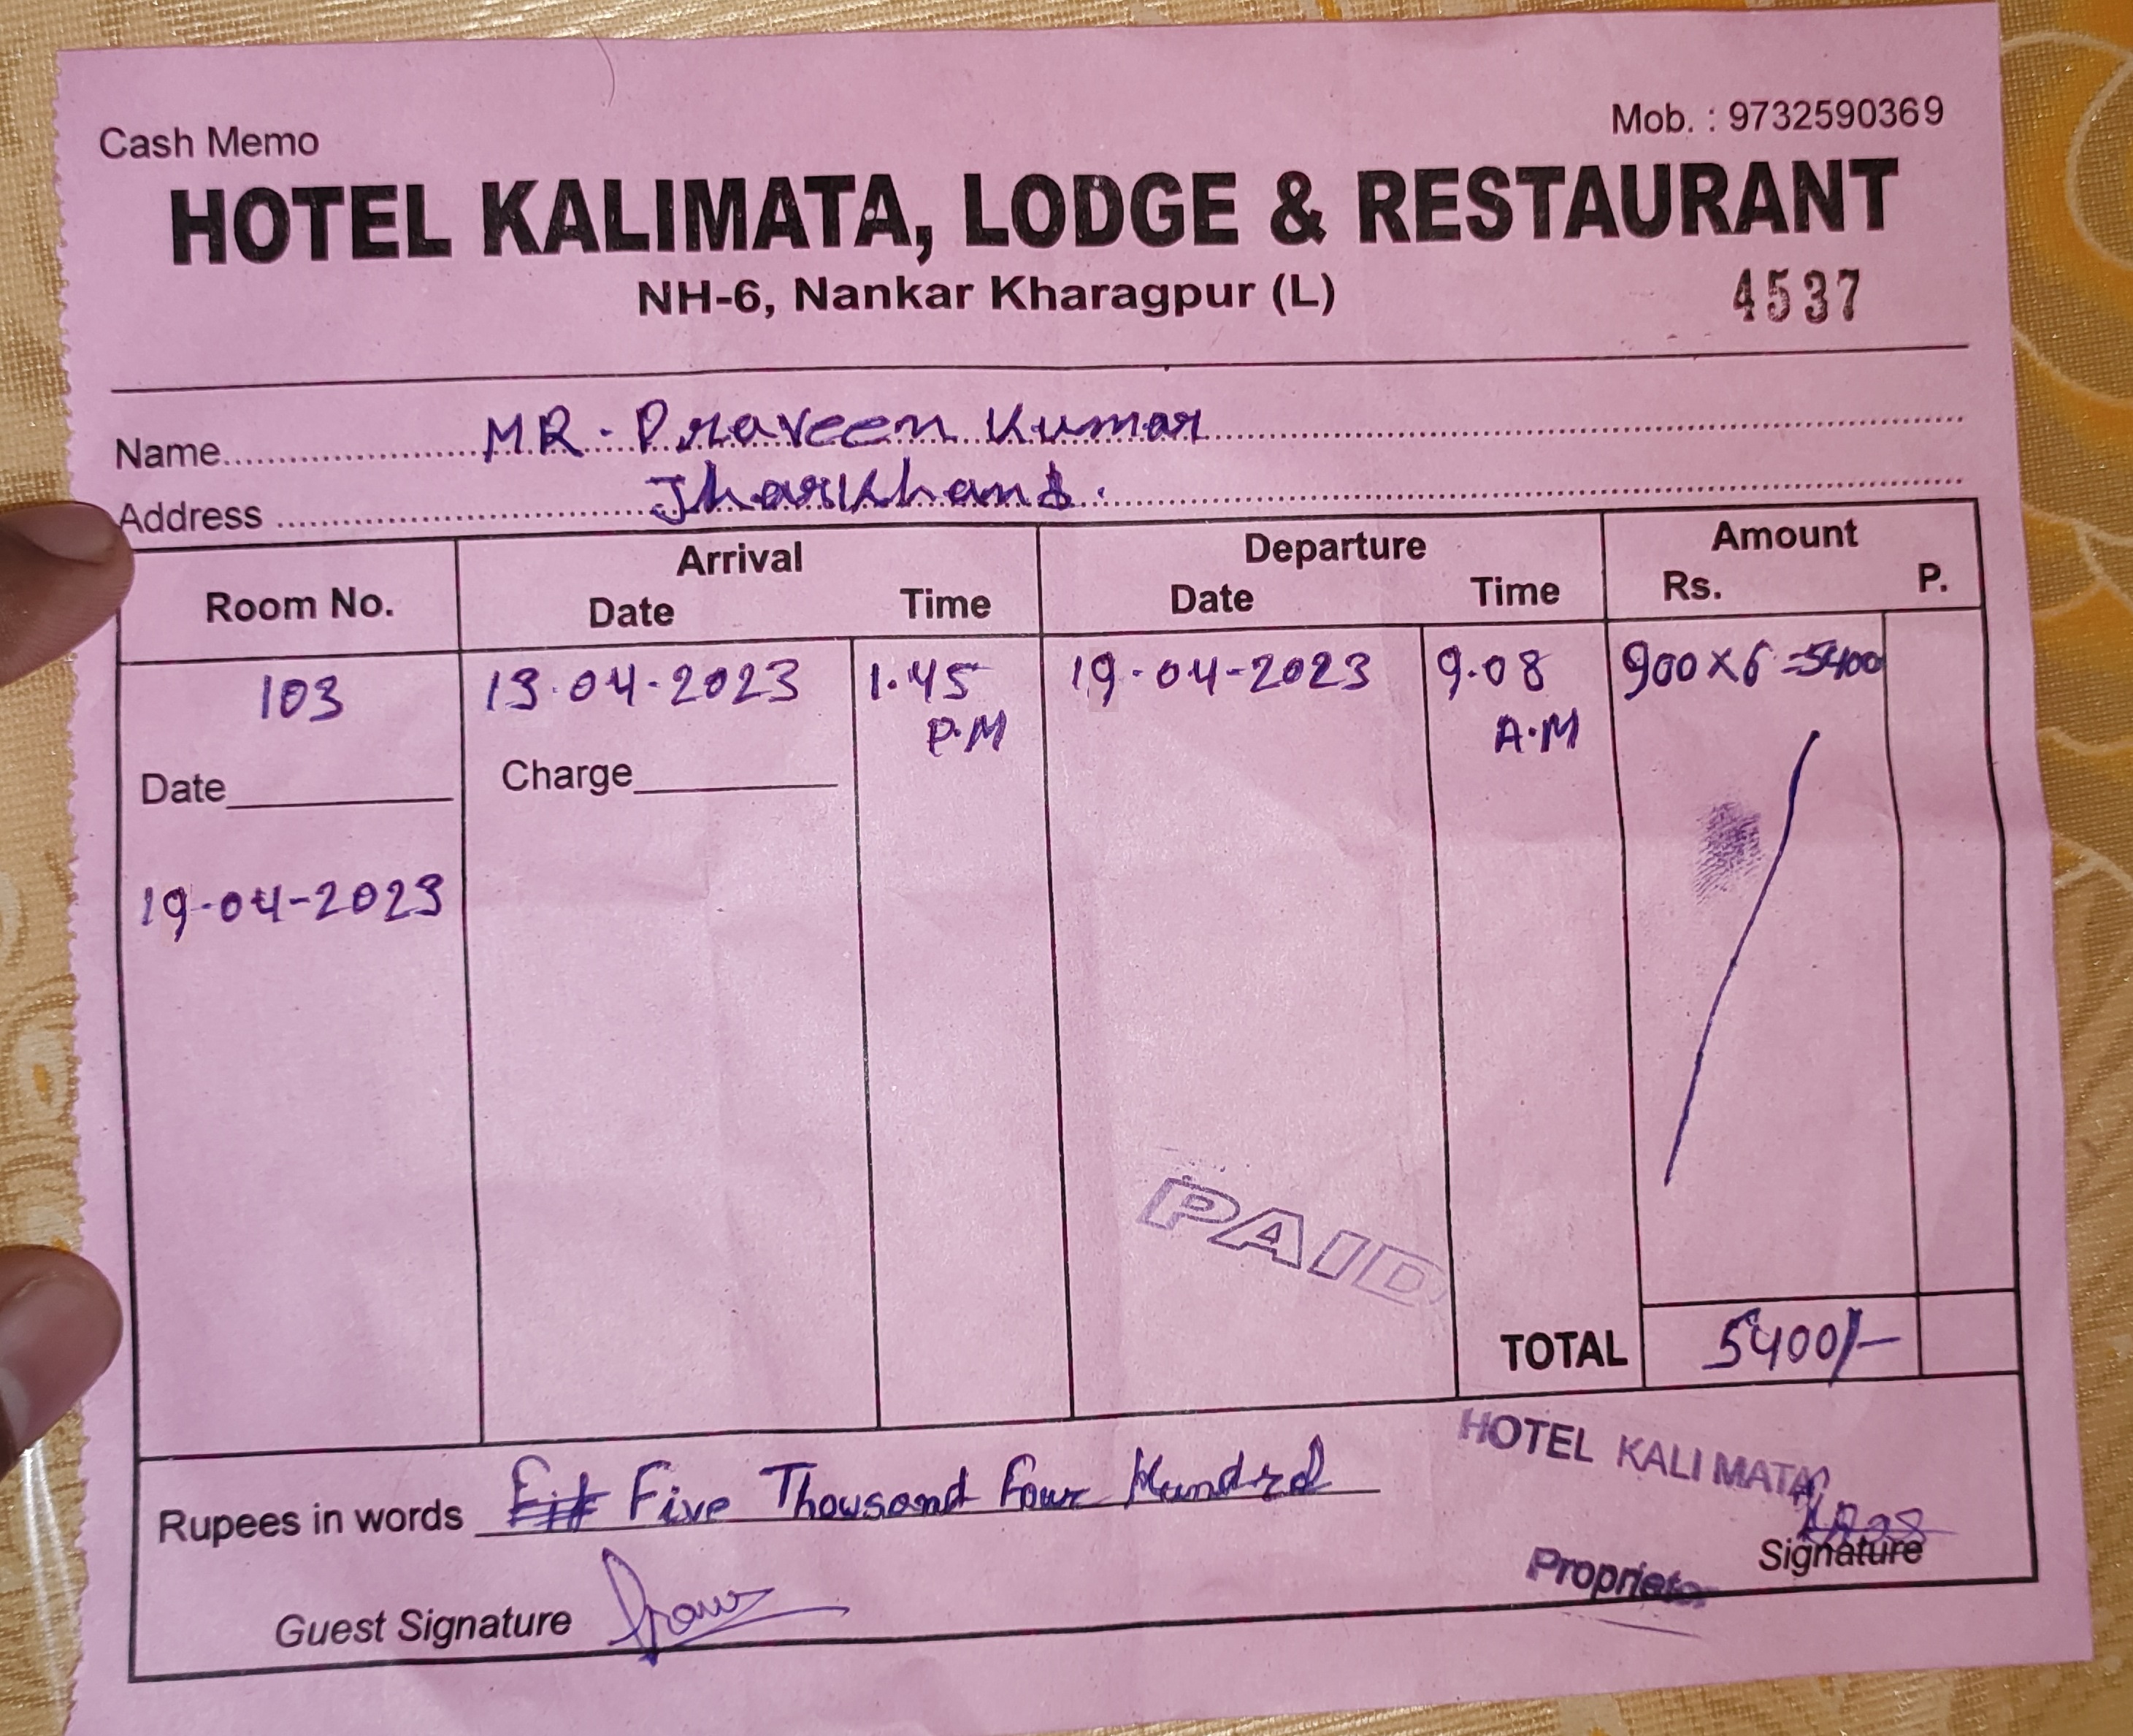 Cash Memo
Mob. : 9732590369
HOTEL KALIMATA, LODGE & RESTAURANT
NH-6, Nankar Kharagpur (L)
4537
Name MR. Praveen Kumar
Address Jharkhand.
Room No. Arrival Departure Amount
Date Time Date Time Rs. P.
103 13.04-2023 1.45 P.M 19.04-2023 9.08 A.M 900x6=5400
Date Charge
19.04-2023
PAID
TOTAL 5400/-
Rupees in words Five Thousand Four Hundrd
HOTEL KALI MATA
Proprietor
Signature
Guest Signature